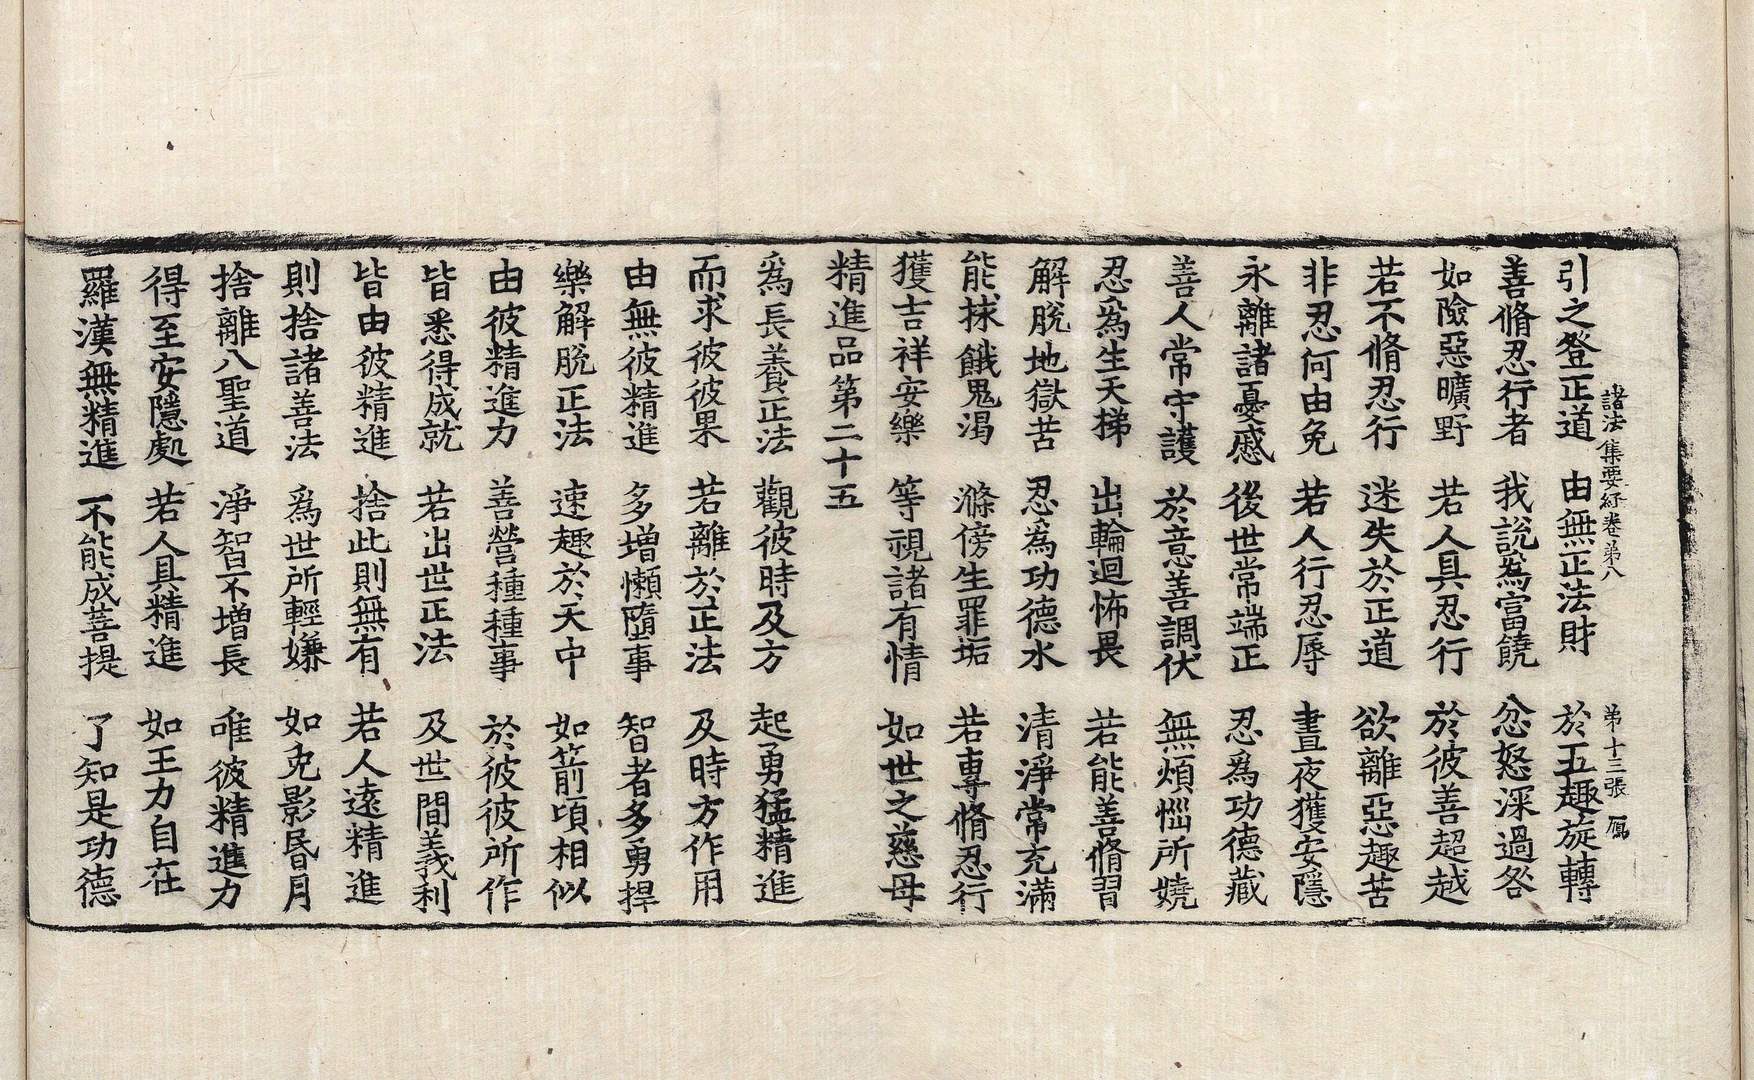 諸法集要經卷第八　第十三張　鳳
引之登正道　由無正法財　於五趣旋轉
善脩忍行者　我說為富饒　忿怒深過咎
如險惡曠野　若人具忍行　於彼善超越
若不脩忍行　迷失於正道　欲離惡趣苦
非忍何由免　若人行忍辱　晝夜獲安隱
永離諸憂慼　後世常端正　忍為功德藏
善人常守護　於意善調伏　無煩惱所嬈
忍為生天梯　出輪迴怖畏　若能善脩習
解脫地獄苦　忍為功德水　清淨常充滿
能捄餓鬼渴　滌傍生罪垢　若專脩忍行
獲吉祥安樂　等視諸有情　如世之慈母
精進品第二十五
為長養正法　觀彼時及方　起勇猛精進
而求彼彼果　若離於正法　及時方作用
由無彼精進　多增懶墮事　智者多勇捍
樂解脫正法　速趣於天中　如箭頃相似
由彼精進力　善營種種事　於彼彼所作
皆悉得成就　若出世正法　及世間義利
皆由彼精進　捨此則無有　若人遠精進
則捨諸善法　為世所輕嫌　如免影昬月
捨離八聖道　淨智不增長　唯彼精進力
得至安隱處　若人具精進　如王力自在
羅漢無精進　不能成菩提　了知是功德